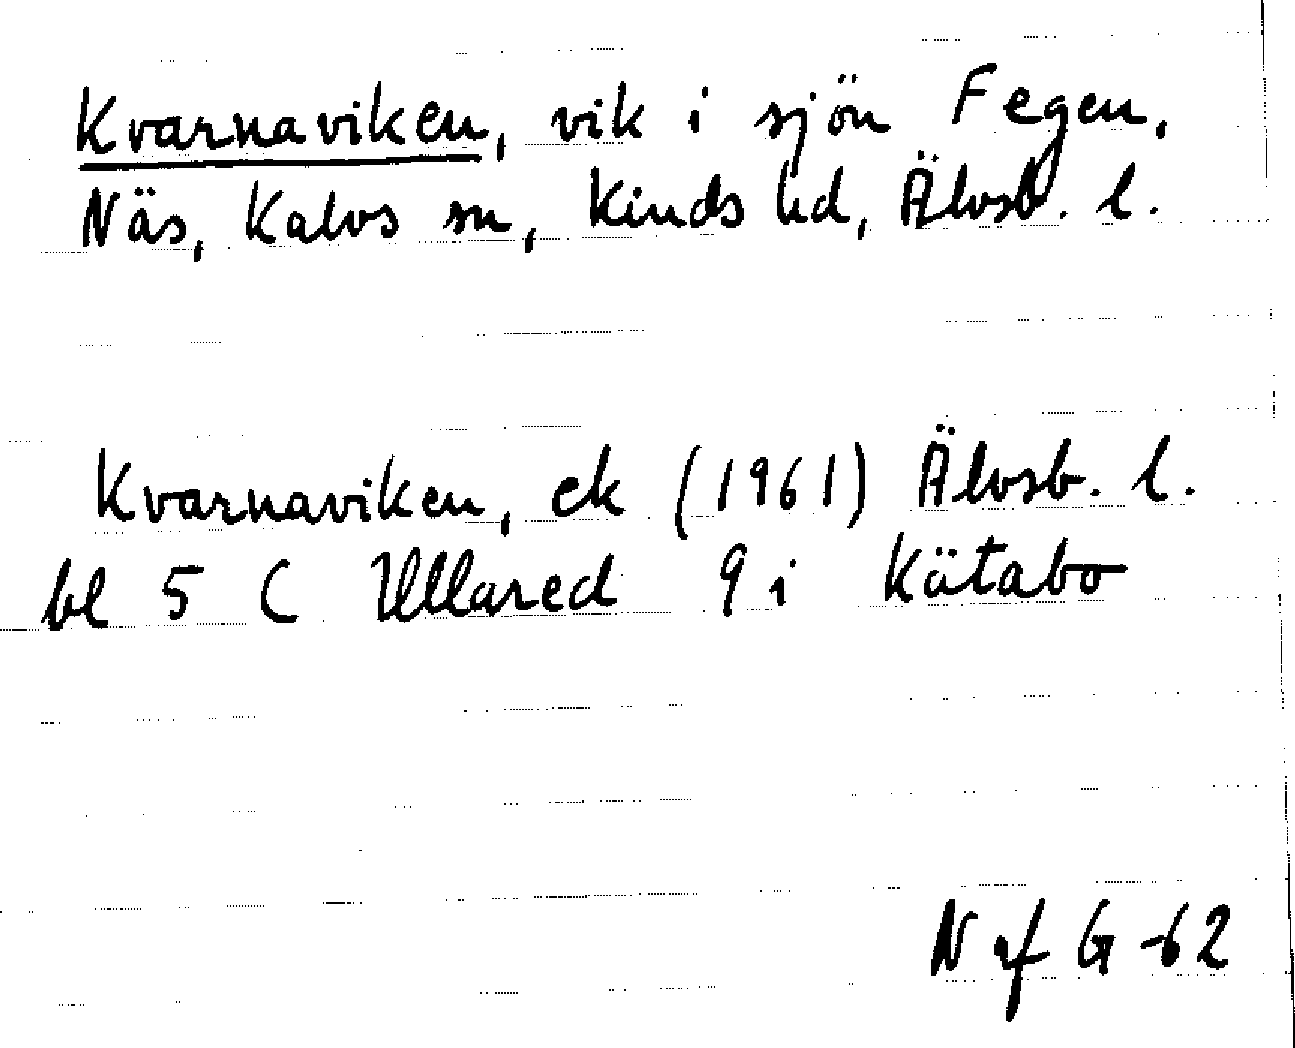 Kvarnaviken, vik i sjön Fegen,
Näs, Kalvs sn, Kinds hd, Älvsb. l.
Kvarnaviken, ek (1961) Älvsb. l.
bl 5 C Ullared 9 i Kätabo
N af G -62